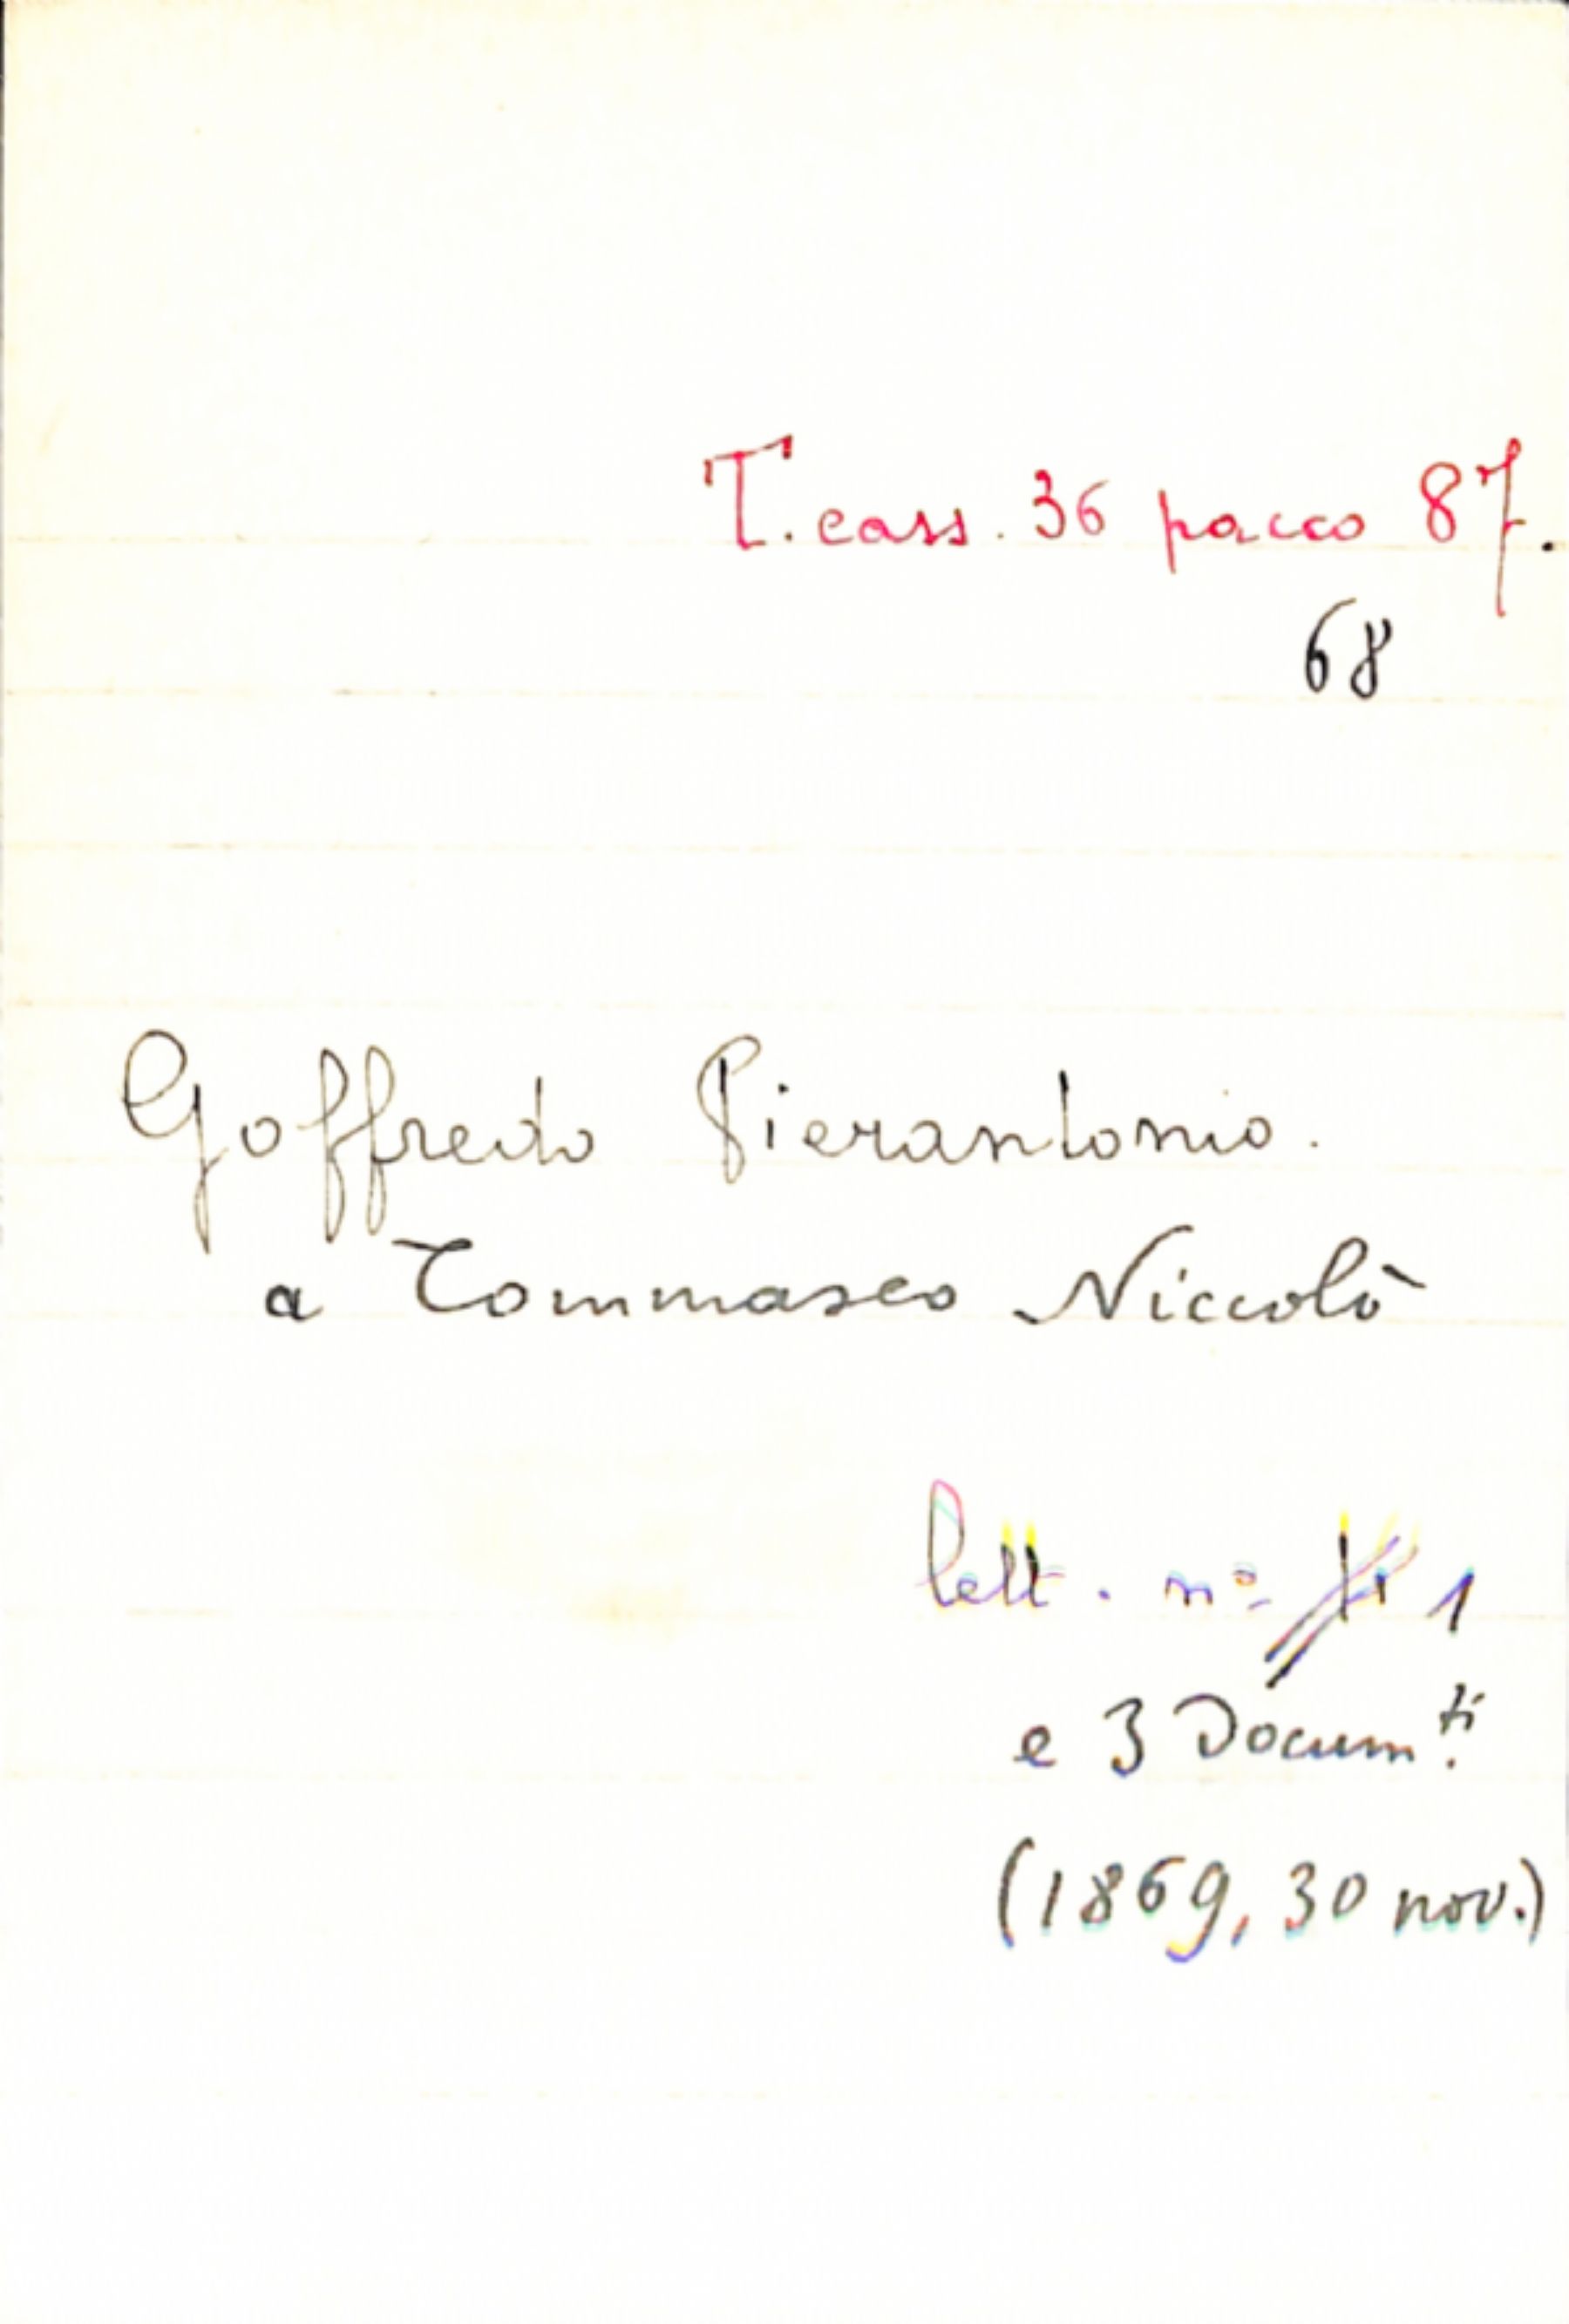 T. cass. 36 pacco 87.
68
Goffredo Pierantonio.
a Tommaseo Niccolò
lett. nº 1
e 3 Docum.ti
(1869, 30 nov.)